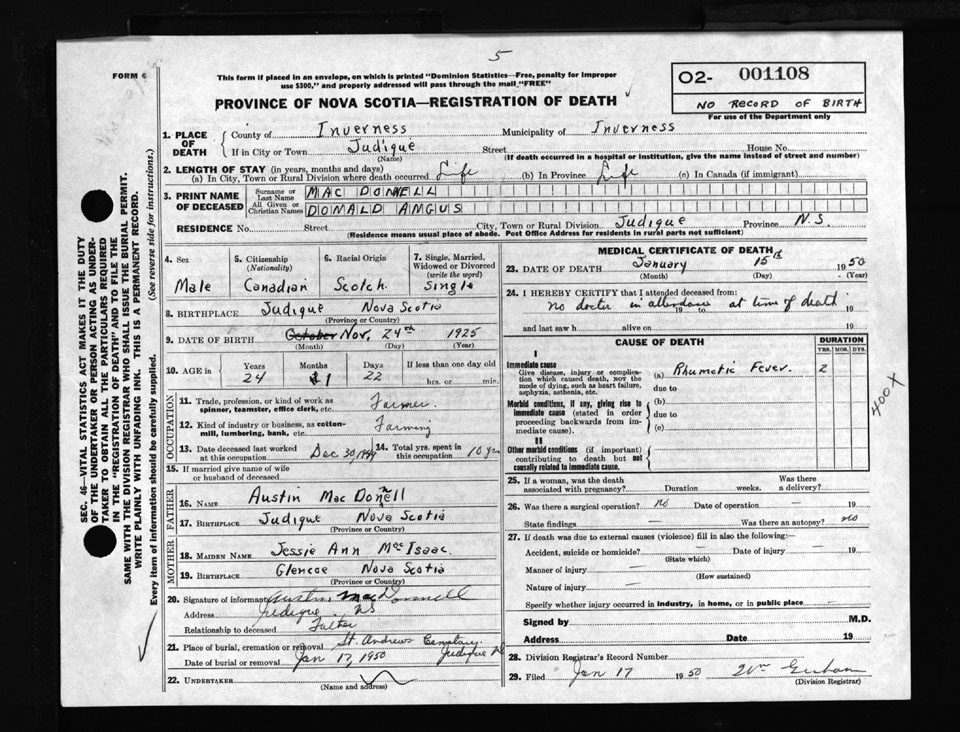 5
FORM 6
This form if placed in an envelope, on which is printed "Dominion Statistics—Free, penalty for improper
use $300," and properly addressed will pass through the mail "FREE"
PROVINCE OF NOVA SCOTIA—REGISTRATION OF DEATH
O2- 001108
NO RECORD OF BIRTH
For use of the Department only
1. PLACE OF DEATH
County of Inverness Municipality of Inverness
If in City or Town Judique Street House No.
(Name) (If death occurred in a hospital or institution, give the name instead of street and number)
2. LENGTH OF STAY (in years, months and days)
(a) In City, Town or Rural Division where death occurred Life (b) In Province Life (c) In Canada (if immigrant)
3. PRINT NAME OF DECEASED
Surname or Last Name MAC DONELL
All Given or Christian Names DONALD ANGUS
RESIDENCE No. Street City, Town or Rural Division Judique Province N.S.
(Residence means usual place of abode. Post Office Address for residents in rural parts not sufficient)
4. Sex
Male
5. Citizenship
(Nationality)
Canadian
6. Racial Origin
Scotch
7. Single, Married, Widowed or Divorced
(write the word)
Single
8. BIRTHPLACE Judique Nova Scotia
(Province or Country)
9. DATE OF BIRTH October Nov, 24th 1925
(Month) (Day) (Year)
10. AGE in
Years Months Days If less than one day old
24 1 22 hrs. or min.
OCCUPATION
11. Trade, profession, or kind of work as
spinner, teamster, office clerk, etc. Farmer.
12. Kind of industry or business, as cotton-
mill, lumbering, bank, etc. Farming
13. Date deceased last worked
at this occupation Dec 30, 1949
14. Total yrs. spent in
this occupation 10 yrs
15. If married give name of wife
or husband of deceased
FATHER
16. NAME Austin Mac Donnell
17. BIRTHPLACE Judique Nova Scotia
(Province or Country)
MOTHER
18. MAIDEN NAME Jessie Ann Mac Isaac.
19. BIRTHPLACE Glencoe Nova Scotia
(Province or Country)
20. Signature of informant Austin MacDonnell
Address Judique NS
Relationship to deceased Father
21. Place of burial, cremation or removal St. Andrews Cemetary.
Date of burial or removal Jan 17, 1950 Judique NS
22. UNDERTAKER
(Name and address)
MEDICAL CERTIFICATE OF DEATH
23. DATE OF DEATH January 15th 1950
(Month) (Day) (Year)
24. I HEREBY CERTIFY that I attended deceased from:
no doctor in attendance at time of death
19 to 19
and last saw h alive on 19
CAUSE OF DEATH
DURATION
YRS. MOS. DYS.
I
Immediate cause
Give disease, injury or complica-
tion which caused death, not the
mode of dying, such as heart failure,
asphyxia, asthenia, etc.
(a) Rhumatic Fever. 2
due to
Morbid conditions, if any, giving rise to
immediate cause (stated in order
proceeding backwards from im-
mediate cause).
(b)
due to
(c)
II
Other morbid conditions (if important)
contributing to death but not
causally related to immediate cause.
400X
25. If a woman, was the death
associated with pregnancy? Duration weeks. Was there
a delivery?
26. Was there a surgical operation? no Date of operation — 19
State findings — Was there an autopsy? no
27. If death was due to external causes (violence) fill in also the following:
Accident, suicide or homicide? — Date of injury — 19
(State which)
Manner of injury —
(How sustained)
Nature of injury —
Specify whether injury occurred in industry, in home, or in public place —
Signed by M.D.
Address Date 19
28. Division Registrar's Record Number
29. Filed Jan 17 1950
(Division Registrar)
SEC. 46—VITAL STATISTICS ACT MAKES IT THE DUTY
OF THE UNDERTAKER OR PERSON ACTING AS UNDER-
TAKER TO OBTAIN ALL THE PARTICULARS REQUIRED
IN THE "REGISTRATION OF DEATH" AND TO FILE THE
SAME WITH THE DIVISION REGISTRAR WHO SHALL ISSUE THE BURIAL PERMIT.
WRITE PLAINLY WITH UNFADING INK. THIS IS A PERMANENT RECORD.
Every item of information should be carefully supplied. (See reverse side for instructions.)